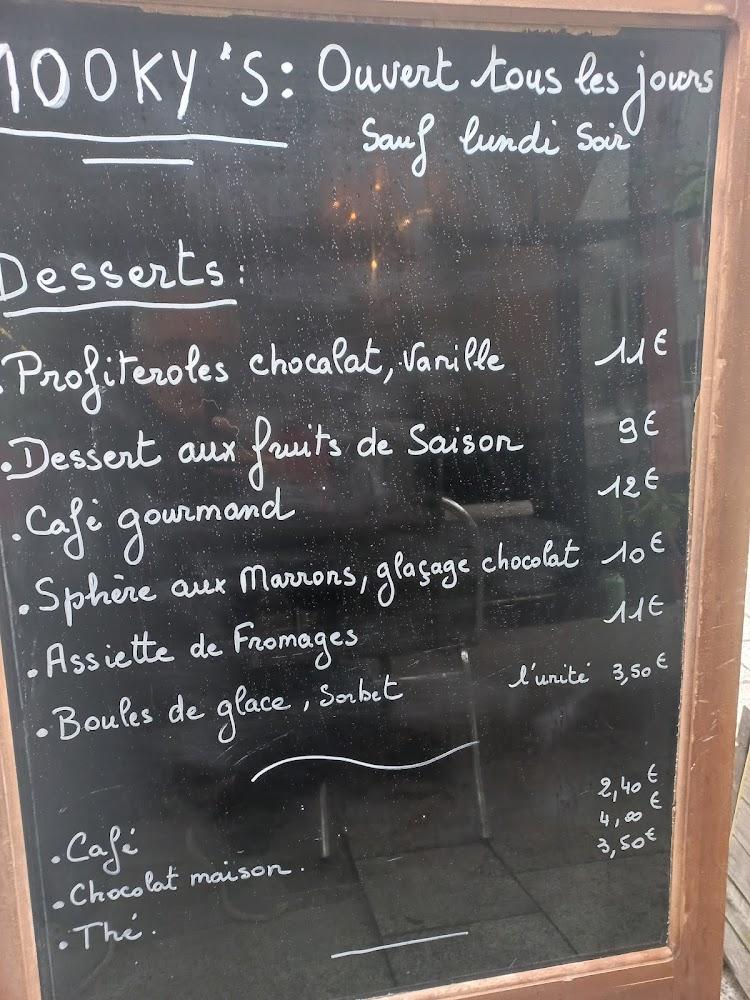 MOOKY'S: Ouvert tous les jours
Sauf lundi Soir
Desserts:
. Profiteroles chocalat, Vanille 11€
. Dessert aux fruits de Saison 9€
. Café gourmand 12€
. Sphère aux Marrons, glaçage chocolat 10€
. Assiette de Fromages 11€
. Boules de glace, Sorbet l'unité 3,50€
. Café 2,40€
. Chocolat maison. 4,00€
. Thé. 3,50€